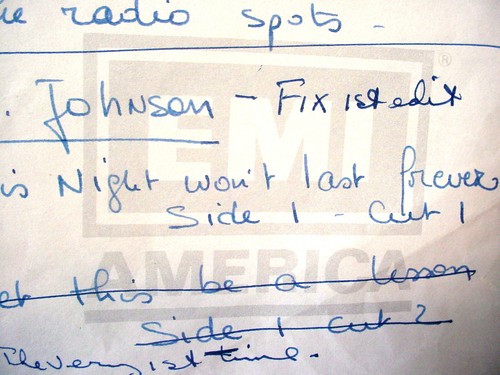 he radio spots -
. Johnson - Fix 1st edit
EMI ®
is Night won't last forever
Side 1 - Cut 1
AMERICA
et this be a lesson
Side 1 cut 2
The very 1st time.